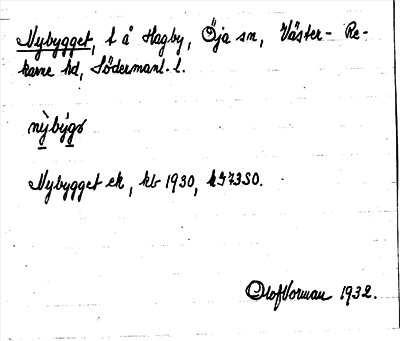 Nybygget, t å Hagby, Öja sn, Väster-Re-
karne hd, Södermanl. l.
nỳbýgə
Nybygget ek, kb 1930, k573SO.
Olof Vorman 1932.